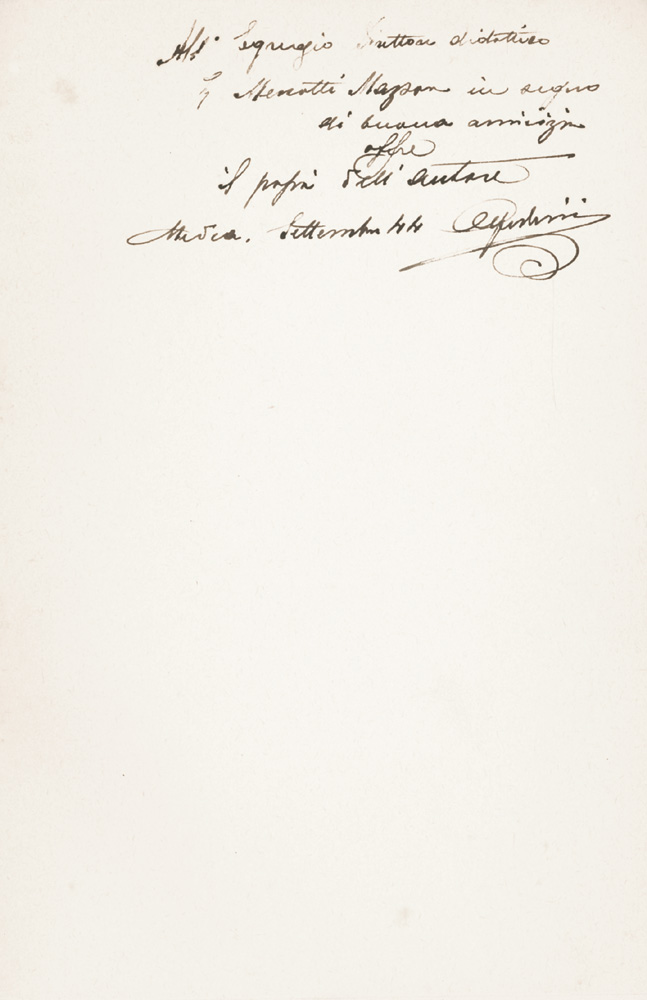 All' Egregio Direttore didattico
Menotti in segno
di buona amicizia
offre
il papà dell'autore
Medea. Settembre 44